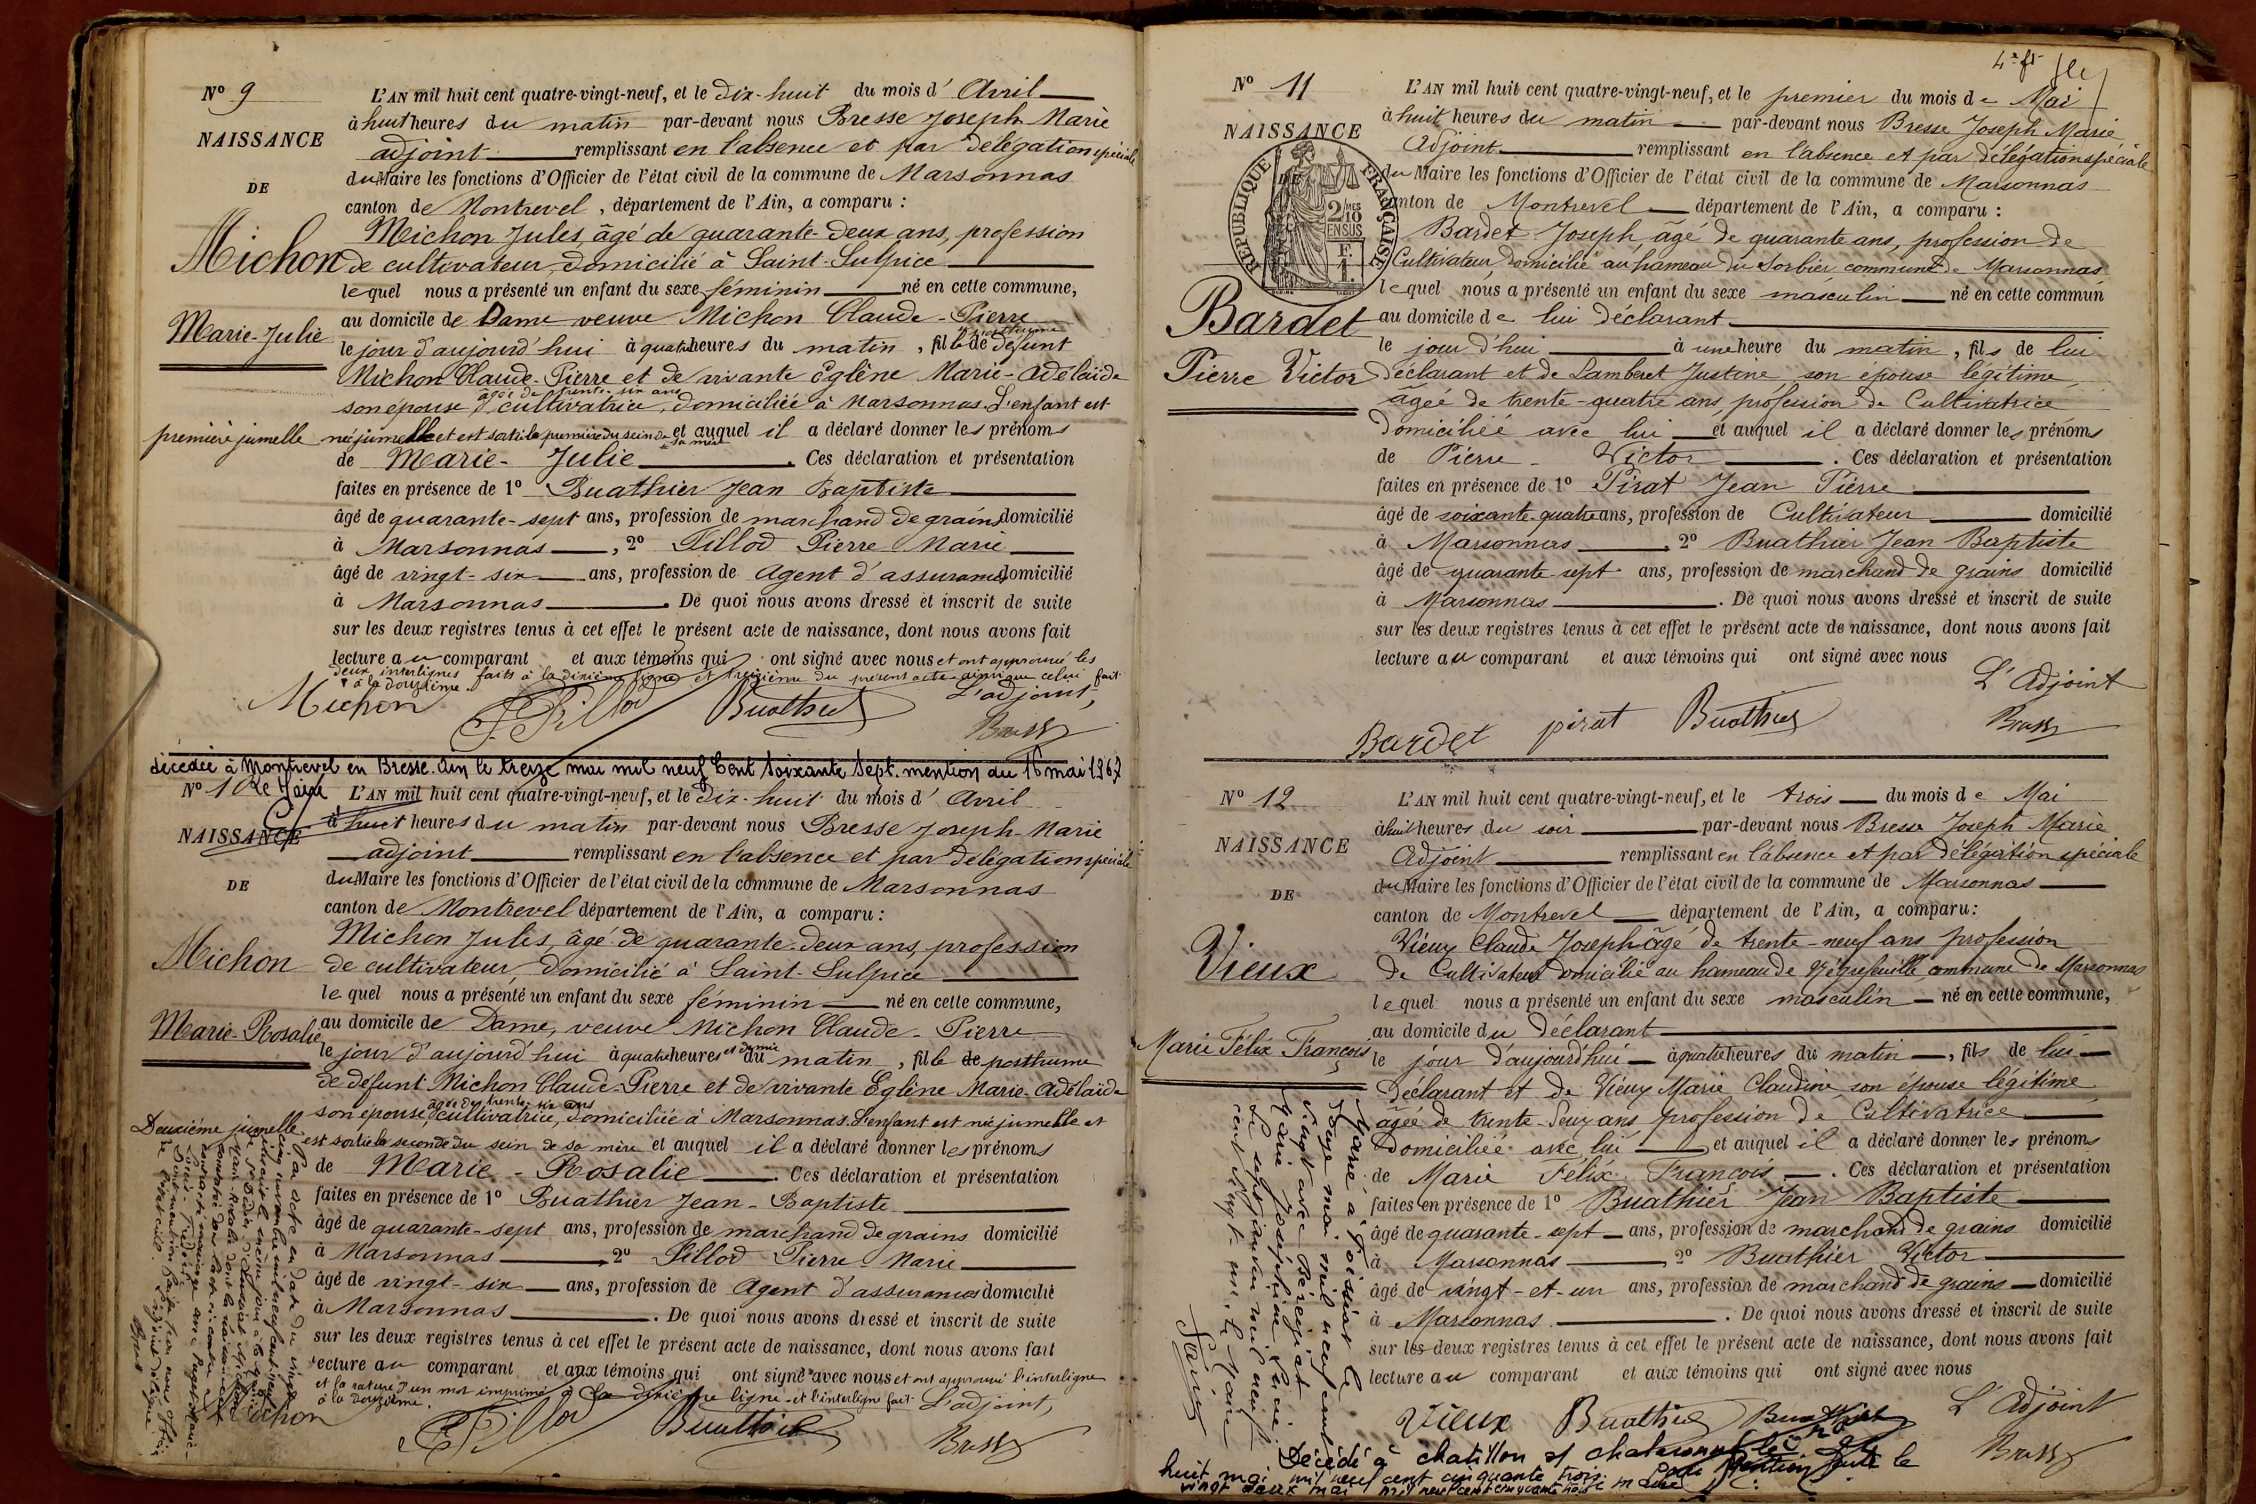 Nº 9
NAISSANCE
DE
Michon
Marie-Julie
première jumelle
L'AN mil huit cent quatre-vingt-neuf, et le dix-huit du mois d' Avril
à huit heures du matin par-devant nous Bresse Joseph-Marie
adjoint remplissant en l'absence et par délégation spéciale
du Maire les fonctions d'Officier de l'état civil de la commune de Marsonnas
canton de Montrevel, département de l'Ain, a comparu :
Michon Jules, âgé de quarante-deux ans, profession
de cultivateur, domicilié à Saint-Sulpice
lequel nous a présenté un enfant du sexe féminin né en cette commune,
au domicile de Dame veuve Michon Claude-Pierre
le jour d'aujourd'hui à quatre heures du matin, fille posthume de défunt
Michon Claude-Pierre et de vivante Eglène Marie-Adélaïde
son épouse âgée de trente six ans, cultivatrice, domiciliée à Marsonnas. L'enfant est
né jumelle et est sortie la première du sein de sa mère et auquel il a déclaré donner les prénoms
de Marie-Julie. Ces déclaration et présentation
faites en présence de 1º Buathier Jean Baptiste
âgé de quarante-sept ans, profession de marchand de grains domicilié
à Marsonnas, 2º Pillod Pierre Marie
âgé de vingt-six ans, profession de Agent d'assurances domicilié
à Marsonnas. De quoi nous avons dressé et inscrit de suite
sur les deux registres tenus à cet effet le présent acte de naissance, dont nous avons fait
lecture au comparant et aux témoins qui ont signé avec nous et ont approuvé les
deux interlignes faits à la dixième ligne et treizième du présent acte ainsi que celui fait
à la douzième.
Michon Pillod Buathier L'adjoint,
Bresse
décédée à Montrevel en Bresse. Ain le treize mai mil neuf cent soixante sept. mention du 16 mai 1967
Le Maire
Nº 10
NAISSANCE
DE
Michon
Marie-Rosalie
Deuxième jumelle
L'AN mil huit cent quatre-vingt-neuf, et le dix-huit du mois d' Avril
à huit heures du matin par-devant nous Bresse Joseph-Marie
adjoint remplissant en l'absence et par délégation spéciale
du Maire les fonctions d'Officier de l'état civil de la commune de Marsonnas
canton de Montrevel département de l'Ain, a comparu :
Michon Jules, âgé de quarante-deux ans, profession
de cultivateur, domicilié à Saint-Sulpice
lequel nous a présenté un enfant du sexe féminin né en cette commune,
au domicile de Dame, veuve Michon Claude-Pierre
le jour d'aujourd'hui à quatre heures et demie du matin, fille de posthume
de défunt Michon Claude-Pierre et de vivante Eglène Marie-Adélaïde
son épouse, âgée de trente-six ans, cultivatrice, domiciliée à Marsonnas. L'enfant est né jumelle et
est sortie la seconde du sein de sa mère et auquel il a déclaré donner les prénoms
de Marie-Rosalie. Ces déclaration et présentation
faites en présence de 1º Buathier Jean-Baptiste
âgé de quarante-sept ans, profession de marchand de grains domicilié
à Marsonnas 2º Pillod Pierre Marie
âgé de vingt-six ans, profession de Agent d'assurances domicilié
à Marsonnas. De quoi nous avons dressé et inscrit de suite
sur les deux registres tenus à cet effet le présent acte de naissance, dont nous avons fait
lecture au comparant et aux témoins qui ont signé avec nous et ont approuvé l'interligne
et la rature d'un mot imprimé à la dixième ligne et l'interligne fait
à la douzième.
Michon Pillod Buathier L'adjoint,
Bresse
4e ft
Nº 11
NAISSANCE
RÉPUBLIQUE FRANÇAISE
2/10 MES
EN SUS
F.
1.
Bardet
Pierre Victor
L'AN mil huit cent quatre-vingt-neuf, et le premier du mois de Mai
à huit heures du matin par-devant nous Bresse Joseph Marie
Adjoint remplissant en l'absence et par délégation spéciale
du Maire les fonctions d'Officier de l'état civil de la commune de Marsonnas
canton de Montrevel département de l'Ain, a comparu :
Bardet Joseph, âgé de quarante ans, profession de
Cultivateur, domicilié au hameau du Sorbier commune de Marsonnas
lequel nous a présenté un enfant du sexe masculin né en cette commun
au domicile de lui déclarant
le jour d'hui à une heure du matin, fils de lui
déclarant et de Lamberet Justine son épouse légitime,
âgée de trente-quatre ans, profession de Cultivatrice
domiciliée avec lui et auquel il a déclaré donner les prénoms
de Pierre-Victor. Ces déclaration et présentation
faites en présence de 1º Pirat Jean Pierre
âgé de soixante-quatre ans, profession de Cultivateur domicilié
à Marsonnas, 2º Buathier Jean Baptiste
âgé de quarante-sept ans, profession de marchand de grains domicilié
à Marsonnas. De quoi nous avons dressé et inscrit de suite
sur les deux registres tenus à cet effet le présent acte de naissance, dont nous avons fait
lecture au comparant et aux témoins qui ont signé avec nous
L'Adjoint
Bardet pirat Buathier Bresse
Nº 12
NAISSANCE
DE
Vieux
Marie Félix François
L'AN mil huit cent quatre-vingt-neuf, et le trois du mois de Mai
à huit heures du soir par-devant nous Bresse Joseph Marie
Adjoint remplissant en l'absence et par délégation spéciale
du Maire les fonctions d'Officier de l'état civil de la commune de Marsonnas
canton de Montrevel département de l'Ain, a comparu :
Vieux Claude Joseph âgé de trente-neuf ans profession
de Cultivateur domicilié au hameau de Végrefeuille commune de Marsonnas
lequel nous a présenté un enfant du sexe masculin né en cette commune,
au domicile du déclarant
le jour d'aujourd'hui à quatre heures du matin, fils de lui
déclarant et de Vieux Marie Claudine son épouse légitime
âgée de trente-deux ans profession de Cultivatrice
domiciliée avec lui et auquel il a déclaré donner les prénoms
de Marie Félix François. Ces déclaration et présentation
faites en présence de 1º Buathier Jean Baptiste
âgé de quarante-sept ans, profession de marchand de grains domicilié
à Marsonnas 2º Buathier Victor
âgé de vingt-et-un ans, profession de marchand de grains domicilié
à Marsonnas. De quoi nous avons dressé et inscrit de suite
sur les deux registres tenus à cet effet le présent acte de naissance, dont nous avons fait
lecture au comparant et aux témoins qui ont signé avec nous
Vieux Buathier Buathier L'Adjoint
Bresse
Marié à Foissiat le
douze mai mil neuf cent
vingt avec Béréziat
Marie Joséphine
Le sept janvier mil neuf
cent vingt-un. Le Maire
Décédé à chatillon s/ chalaronne le
huit mai mil neuf cent cinquante trois. Mention faite le
vingt deux mai mil neuf cent cinquante trois